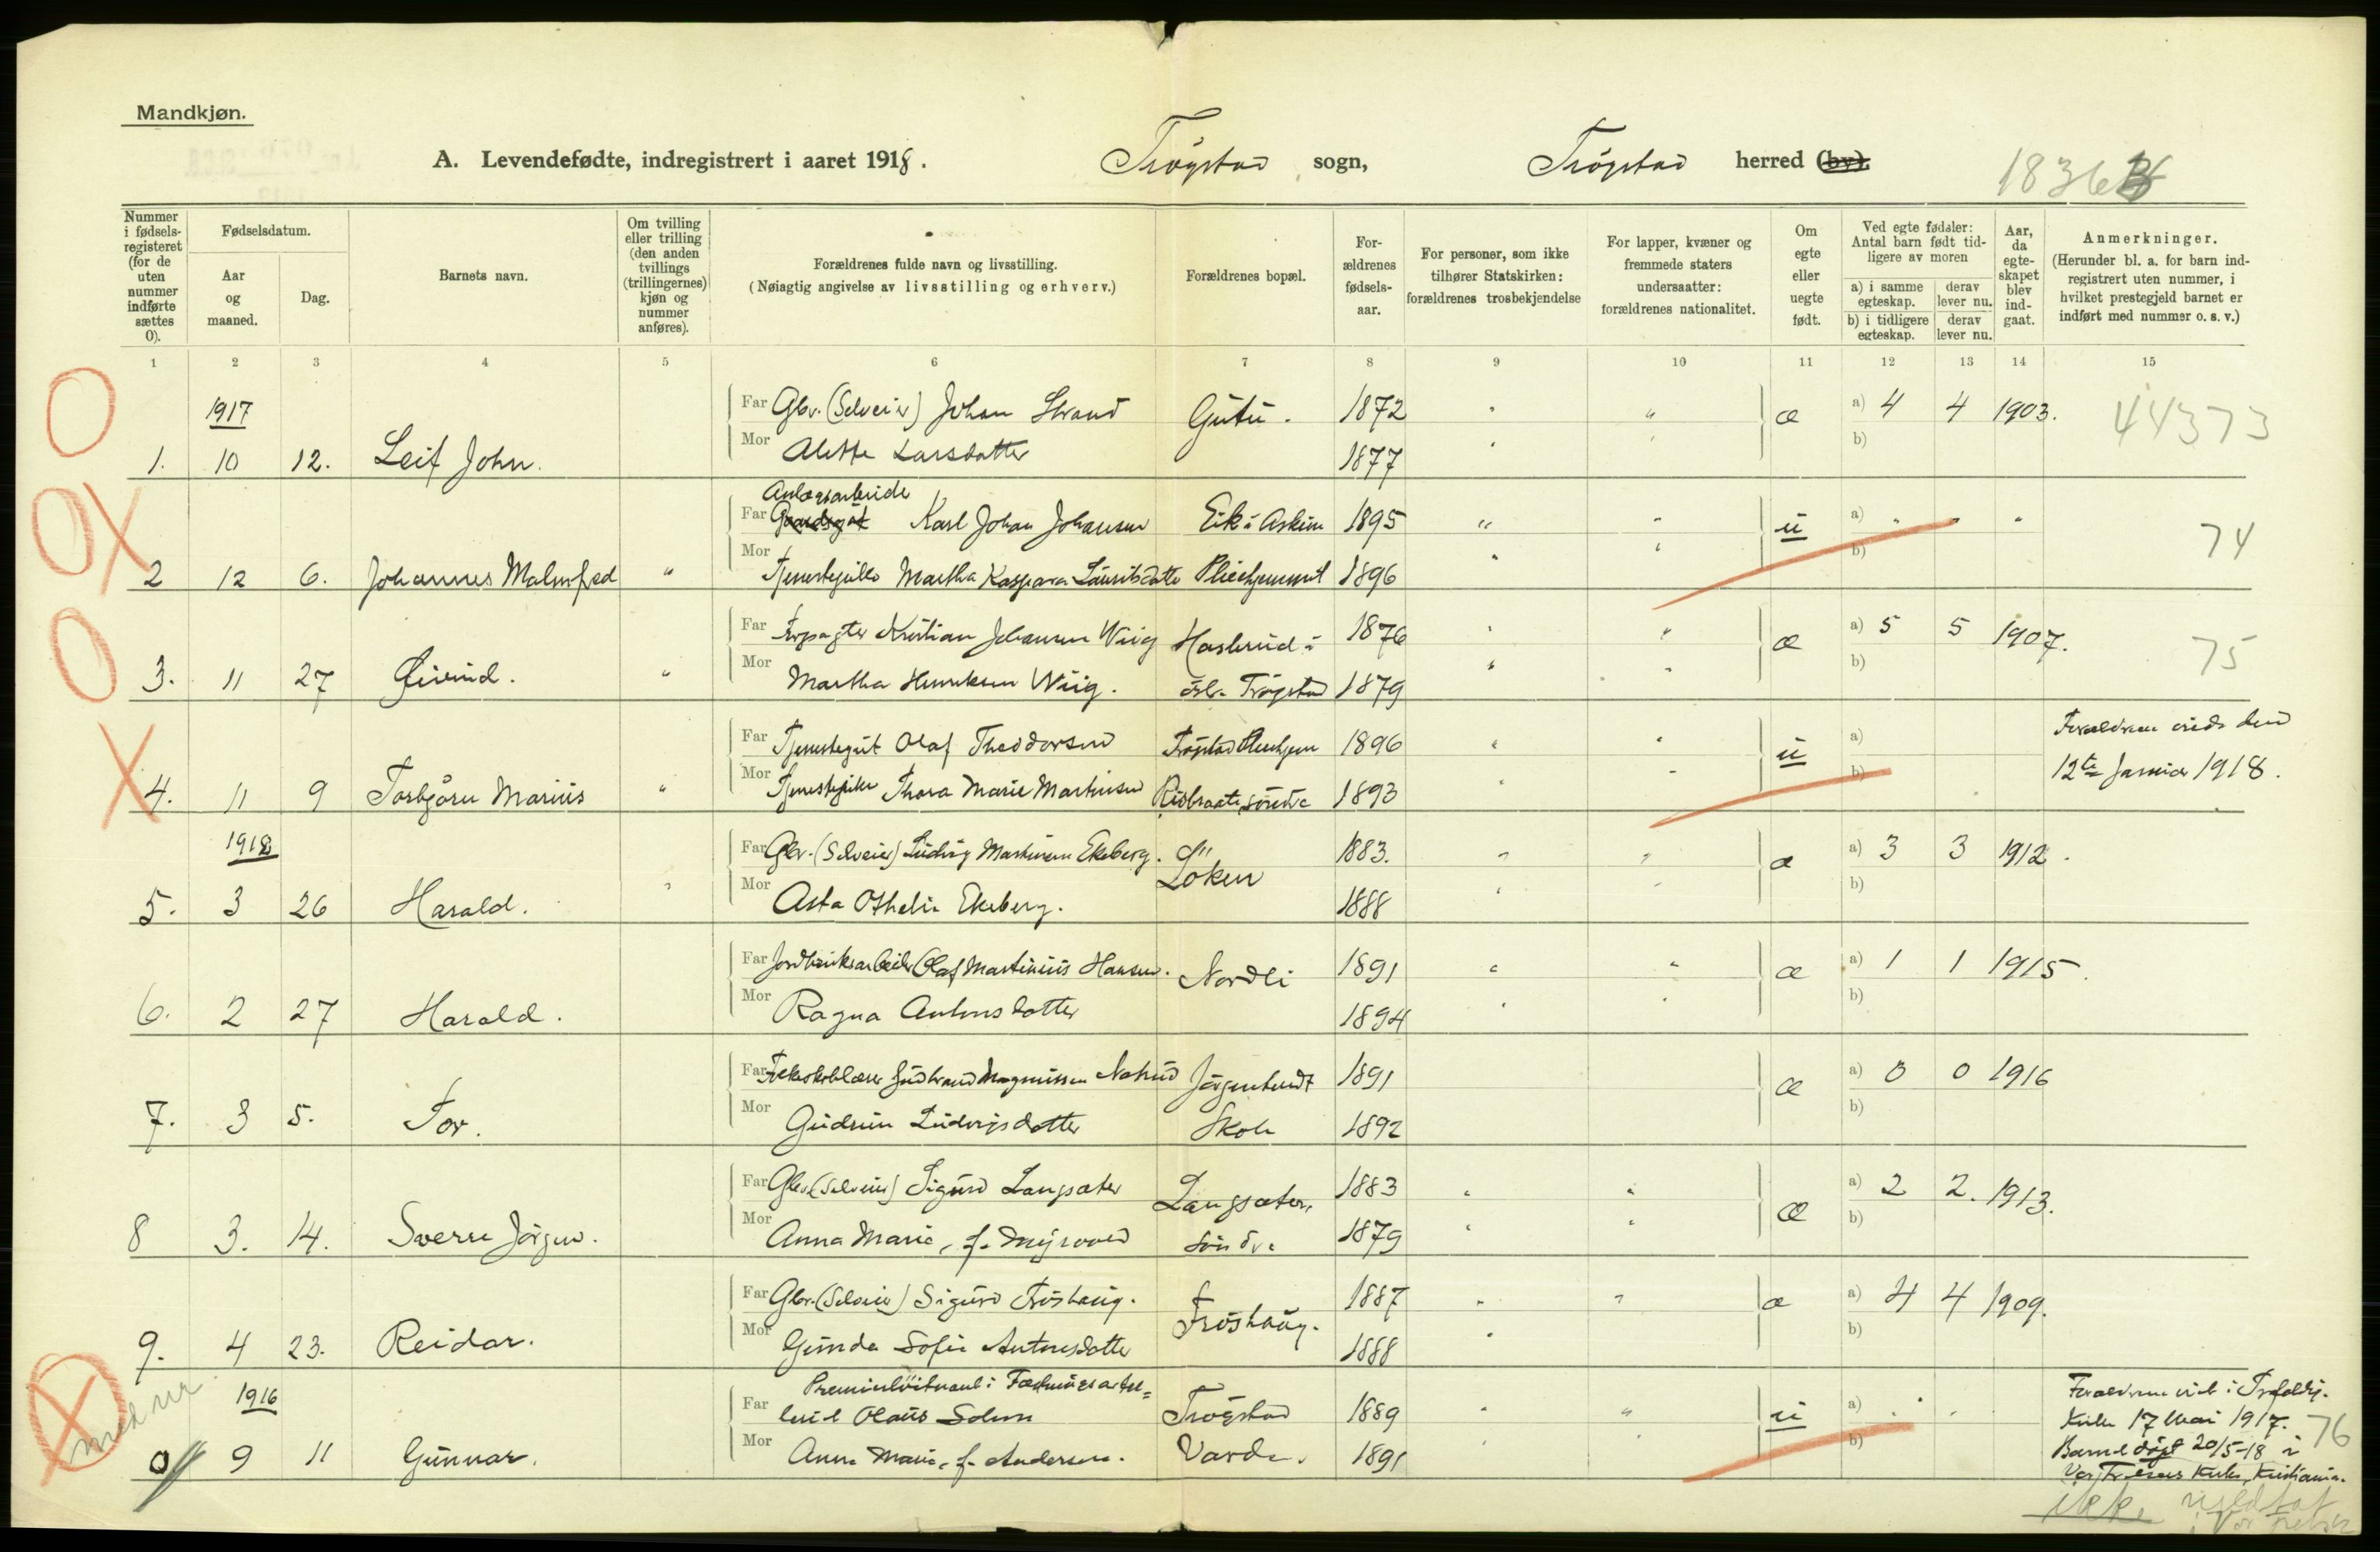 Mandkjøn.
A. Levendefødte, indregistrert i aaret 1918. Trögstad sogn, Trögstad herred (by). 1836
Nummer i fødsels-registeret (for de uten nummer indførte sættes 0).
Fødselsdatum.
Aar og maaned.
Dag.
Barnets navn.
Om tvilling eller trilling (den anden tvillings (trillingernes) kjøn og nummer anføres).
Forældrenes fulde navn og livsstilling.
(Nøiagtig angivelse av livsstilling og erhverv.)
Forældrenes bopæl.
For-ældrenes fødsels-aar.
For personer, som ikke tilhører Statskirken: forældrenes trosbekjendelse
For lapper, kvæner og fremmede staters undersaatter: forældrenes nationalitet.
Om egte eller uegte født.
Ved egte fødsler: Antal barn født tid-ligere av moren
a) i samme egteskap.
derav lever nu.
b) i tidligere egteskap.
derav lever nu.
Aar, da egte-skapet blev ind-gaat.
Anmerkninger.
(Herunder bl. a. for barn ind-registrert uten nummer, i hvilket prestegjeld barnet er indført med nummer o. s. v.)
1 2 3 4 5 6 7 8 9 10 11 12 13 14 15
1917
Far Gbr. (Selveier) Johan Strand Gutu. 1872 " æ a) 4 4 1903. 44373
1. 10 12. Leif John. Mor Alette Larsdatter 1877 b)
Anlægsarbeider
Far Gaardsgut Karl Johan Johansen Eik i Askim 1895 " " u a) " " " 74
2 12 6. Johannes Malmfred " Mor Tjenestepike Martha Kaspara Lauritsdatter Pleiehjemmet 1896 b)
Far Forpagter Kristian Johansen Wiig Haslerud i 1876 " " æ a) 5 5 1907. 75
3. 11 27 Øivind. " Mor Martha Henriksen Wiig. östr. Trögstad 1879 b)
Far Tjenestegut Olaf Theodorsen Trögstad Pleiehjem 1896 " " u a) Forældrene viede den
4. 11 9 Torbjörn Marius " Mor Tjenestepike Thora Marie Martinsen Risbraate söndre 1893 b) 12te Januar 1918.
1918
Far Gbr. (Selveier) Ludvig Martinsen Ekeberg. Löken 1883. " " æ a) 3 3 1912.
5. 3 26 Harald. Mor Asta Othelie Ekeberg. 1888 b)
Far Jordbruksarbeider Olaf Martinius Hansen. Nordli 1891 " " æ a) 1 1 1915.
6. 2 27 Harald. Mor Ragna Antonsdatter 1894 b)
Far Gudbrand Magnussen Jörgentvedt 1891 æ a) 0 0 1916
7. 3 5. Tor. Mor Gudrun Ludvigsdatter Skole 1892 b)
Far Gbr. (Selveier) Sigurd Langsæter Langsæter, 1883 " " æ a) 2 2. 1913.
8 3. 14. Sverre Jörgen. Mor Anna Marie, f. Myrvold söndre 1879 b)
Far Gbr. (Selveier) Sigurd Fröshaug. Fröshaug. 1887 " " æ a) 4 4 1909.
9. 4 23. Reidar. Mor Gunda Sofie Antonsdatter 1888 b)
1916
Premierlöitnant i Fæstningsartil=
Far leri Olaus Solum Trögstad 1889 " " u a) Forældrene viet i Trefoldig.
Kirke 17 Mai 1917. 76
0 9 11 Gunnar. Mor Anna Marie, f. Andersen. Varde. 1891 b) Barnet döpt 20/5-18 i
Vor Frelsers Kirke, Kristiania.
med nr.
ikke